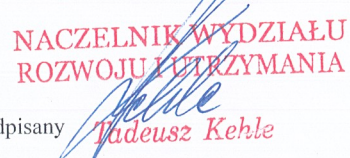 NACZELNIK WYDZIAŁU
ROZWOJU I UTRZYMANIA
dpisany Tadeusz Kehle